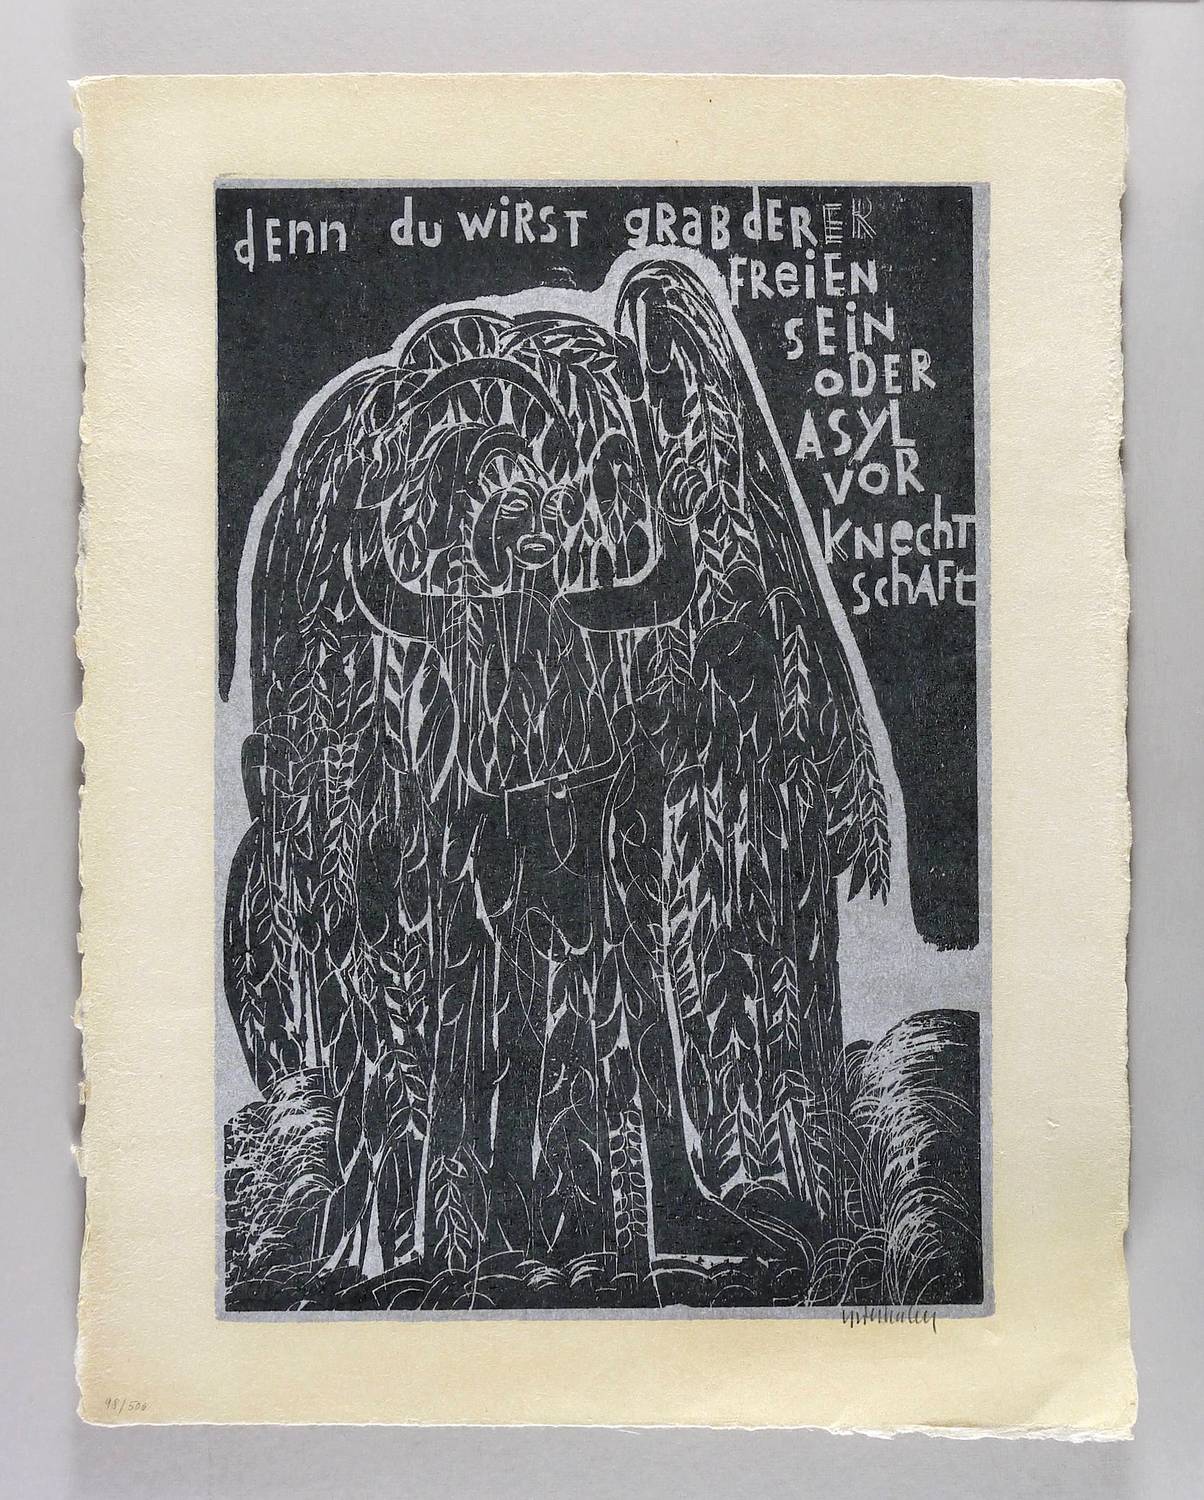 denn du wirst grab der ER
freien
sein
oder
asyl
vor
knecht
schaft
98/500